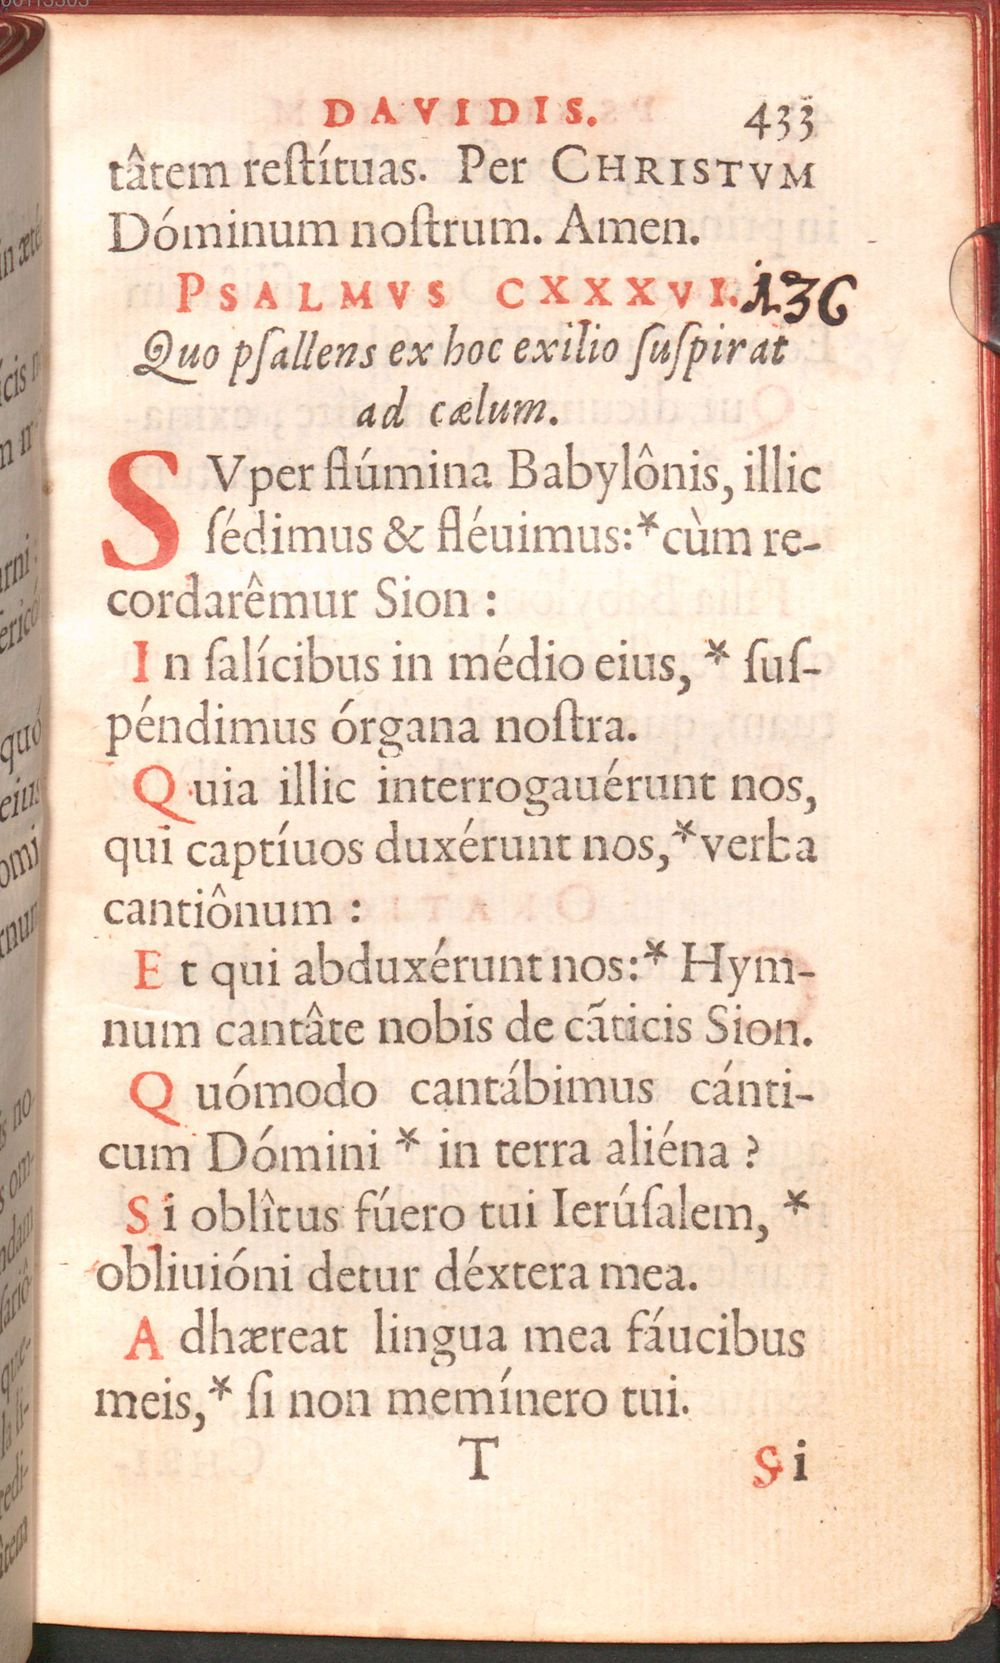 DAVIDIS. 433
tâtem reſtítuas. Per CHRISTVM
Dóminum noſtrum. Amen.
PSALMVS CXXXVI. 136
Quo pſallens ex hoc exilio ſuſpirat
ad cælum.
SVper flúmina Babylônis, illic
ſédimus & fléuimus:* cùm re-
cordarêmur Sion :
In ſalícibus in médio eius, * ſuſ-
péndimus órgana noſtra.
Quia illic interrogauérunt nos,
qui captíuos duxérunt nos,* verba
cantiônum :
Et qui abduxérunt nos:* Hym-
num cantâte nobis de cãticis Sion.
Quómodo cantábimus cánti-
cum Dómini * in terra aliéna ?
Si oblîtus fúero tui Ierúſalem, *
obliuióni detur déxtera mea.
Adhæreat lingua mea fáucibus
meis,* ſi non memínero tui.
T Si